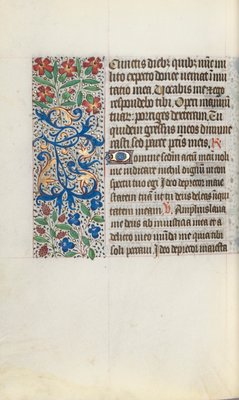 Cunctis diebus quibus nunc mi
lito expecto donec veniat inmu
tatio mea. Vocabis me et ego
respondebo tibi. Operi manuum
tuarum porriges dexteram. Tu
quidem gressus meos dinume
rasti sed parce pctis meis. R
Domine secundum actum meum noli
me iudicare nichil dignum in con
spectu tuo egi. Ideo deprecor maies
tatem tuam ut tu deus deleas iniqui
tatem meam. V. Amplius lava
me deus ab iniusticia mea et a
delicto meo munda me quia tibi
soli peccavi. Ideo deprecor maiesta